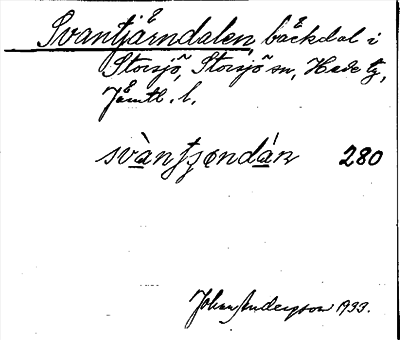 Svantjärndalen, bäckdal i
Storsjö, Storsjö sn, Hede tg,
Jämtl. l.
svàntjøndáṇ 280
Johan Andersson 1933.